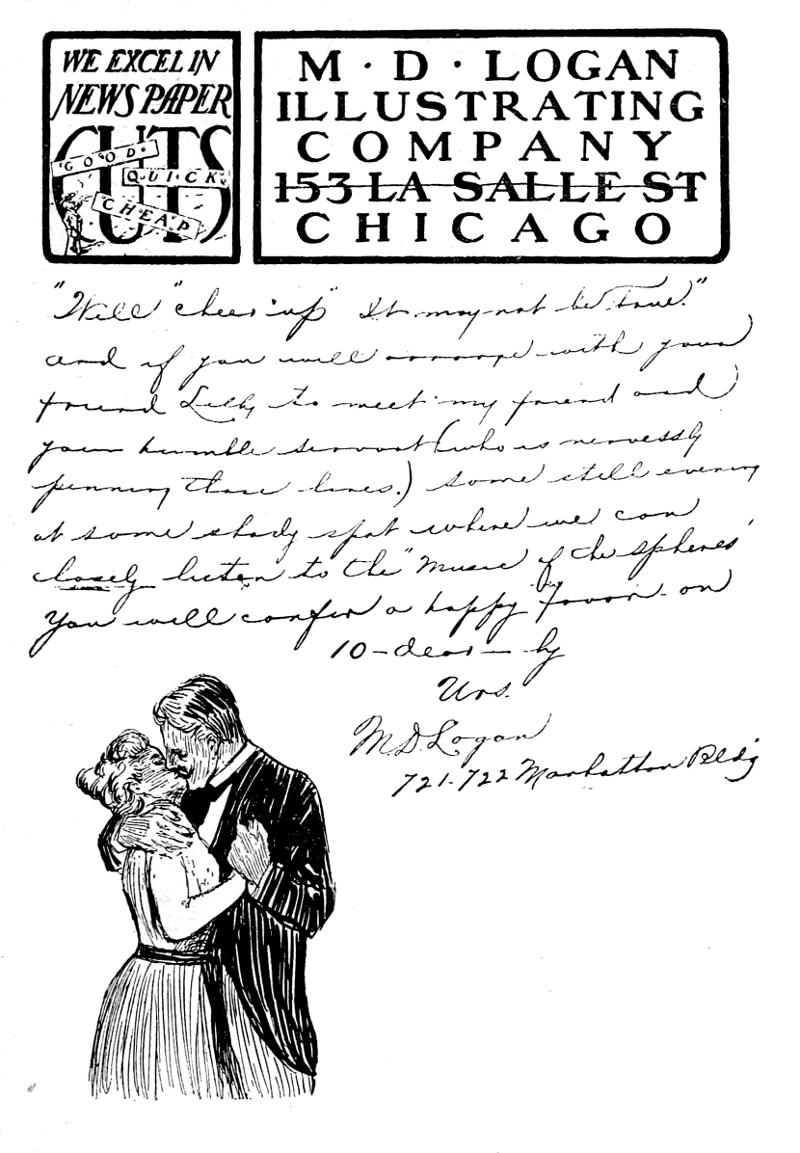 WE EXCEL IN
NEWSPAPER
CUTS
GOOD
QUICK
CHEAP
M · D · LOGAN
ILLUSTRATING
COMPANY
153 LA SALLE ST
CHICAGO
"Will "cheer up" It may not be true."
and if you will arrange with your
friend Lilly to meet my friend and
your humble servant (who is nervessly
penning these lines.) some still evening
at some shady spot where we can
closely listen to the "Music of the spheres"
You will confer a happy favor on
10-dear-ly
Urs.
M D Logan
721-722 Manhattan Bldg